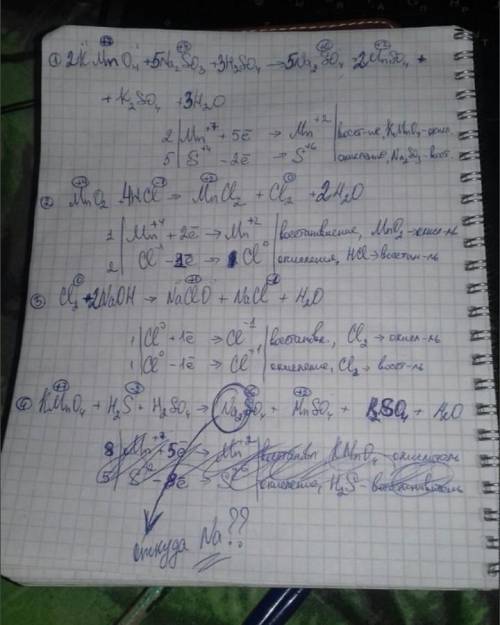 ① 2KMnO₄ + 5Na₂SO₃ + 3H₂SO₄ → 5Na₂SO₄ + 2MnSO₄ +
+ K₂SO₄ + 3H₂O
2 | Mn⁺⁷ + 5ē → Mn⁺² | восст-ие, KMnO₄-окисл.
5 | S⁺⁴ - 2ē → S⁺⁶ | окисление, Na₂SO₃-восст.
② MnO₂ + 4HCl → MnCl₂ + Cl₂ + 2H₂O
1 | Mn⁺⁴ + 2ē → Mn⁺² | восстановление, MnO₂-окисл-ль
2 | Cl⁻¹ - 1ē → Cl⁰ | окисление, HCl → восстан-ль
③ Cl₂ + 2NaOH → NaClO + NaCl + H₂O
1 | Cl⁰ + 1ē → Cl⁻¹ | восстановл., Cl₂ → окисл-ль
1 | Cl⁰ - 1ē → Cl⁺¹ | окисление, Cl₂ → восст-ль
④ KMnO₄ + H₂S + H₂SO₄ → Na₂SO₄ + MnSO₄ + K₂SO₄ + H₂O
8 | Mn⁺⁷ + 5ē → Mn⁺² | KMnO₄ - окислитель
5 | S⁻² - 8ē → S⁺⁶ | окисление, H₂S - восстановитель
откуда Na??